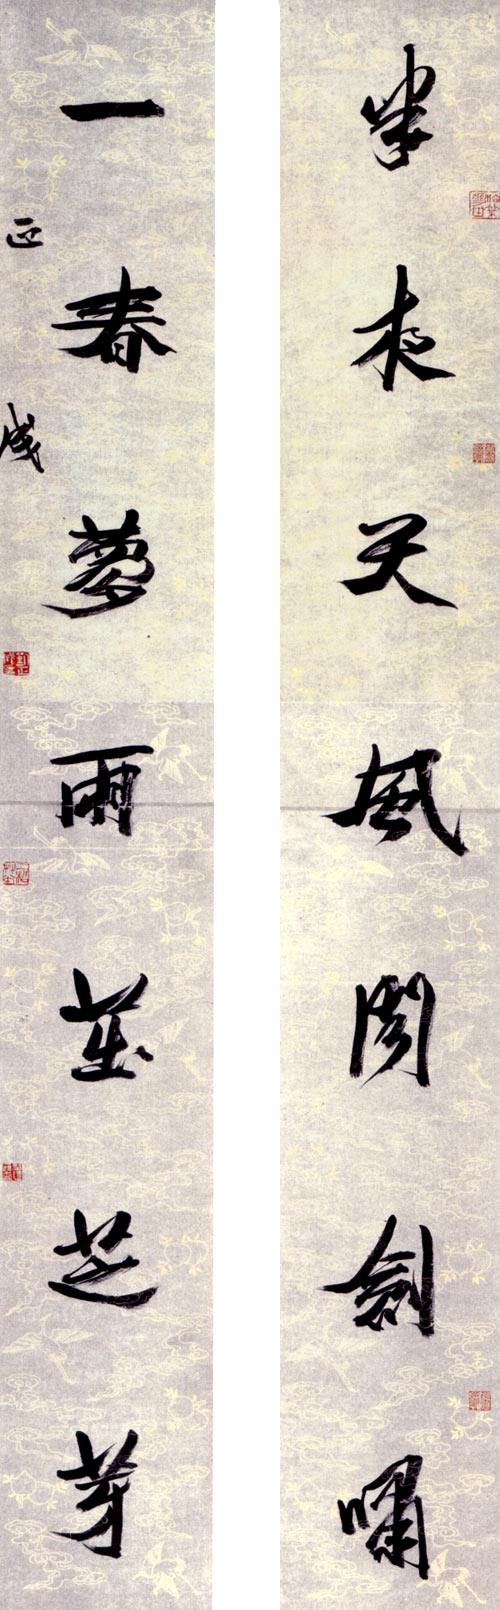 半夜天風聞劍嘯
一春夢雨茁芝芽
正成